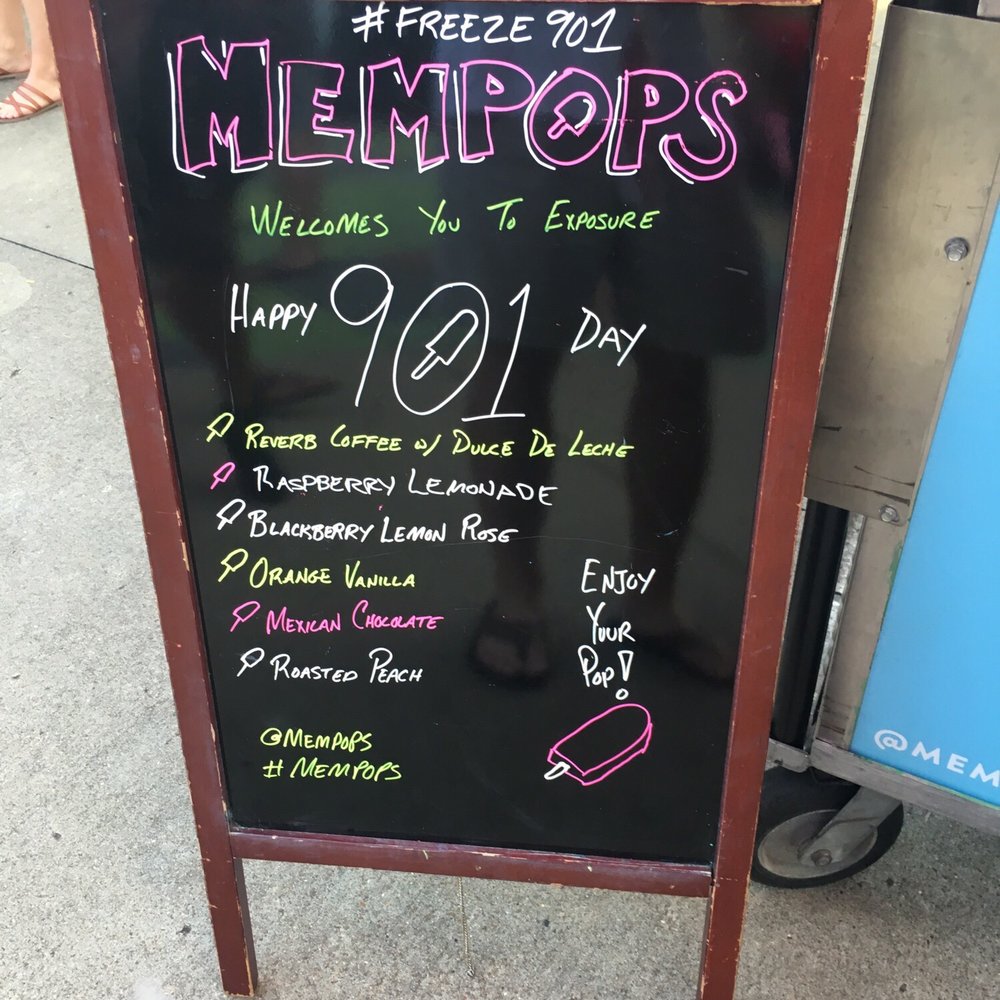 #FREEZE 901
MEMPOPS
WELCOMES YOU TO EXPOSURE
HAPPY 901 DAY
REVERB COFFEE w/ DULCE DE LECHE
RASPBERRY LEMONADE
BLACKBERRY LEMON ROSE
ORANGE VANILLA
MEXICAN CHOCOLATE
ROASTED PEACH
ENJOY
YOUR
POP!
@MEMPOPS
#MEMPOPS
@MEM